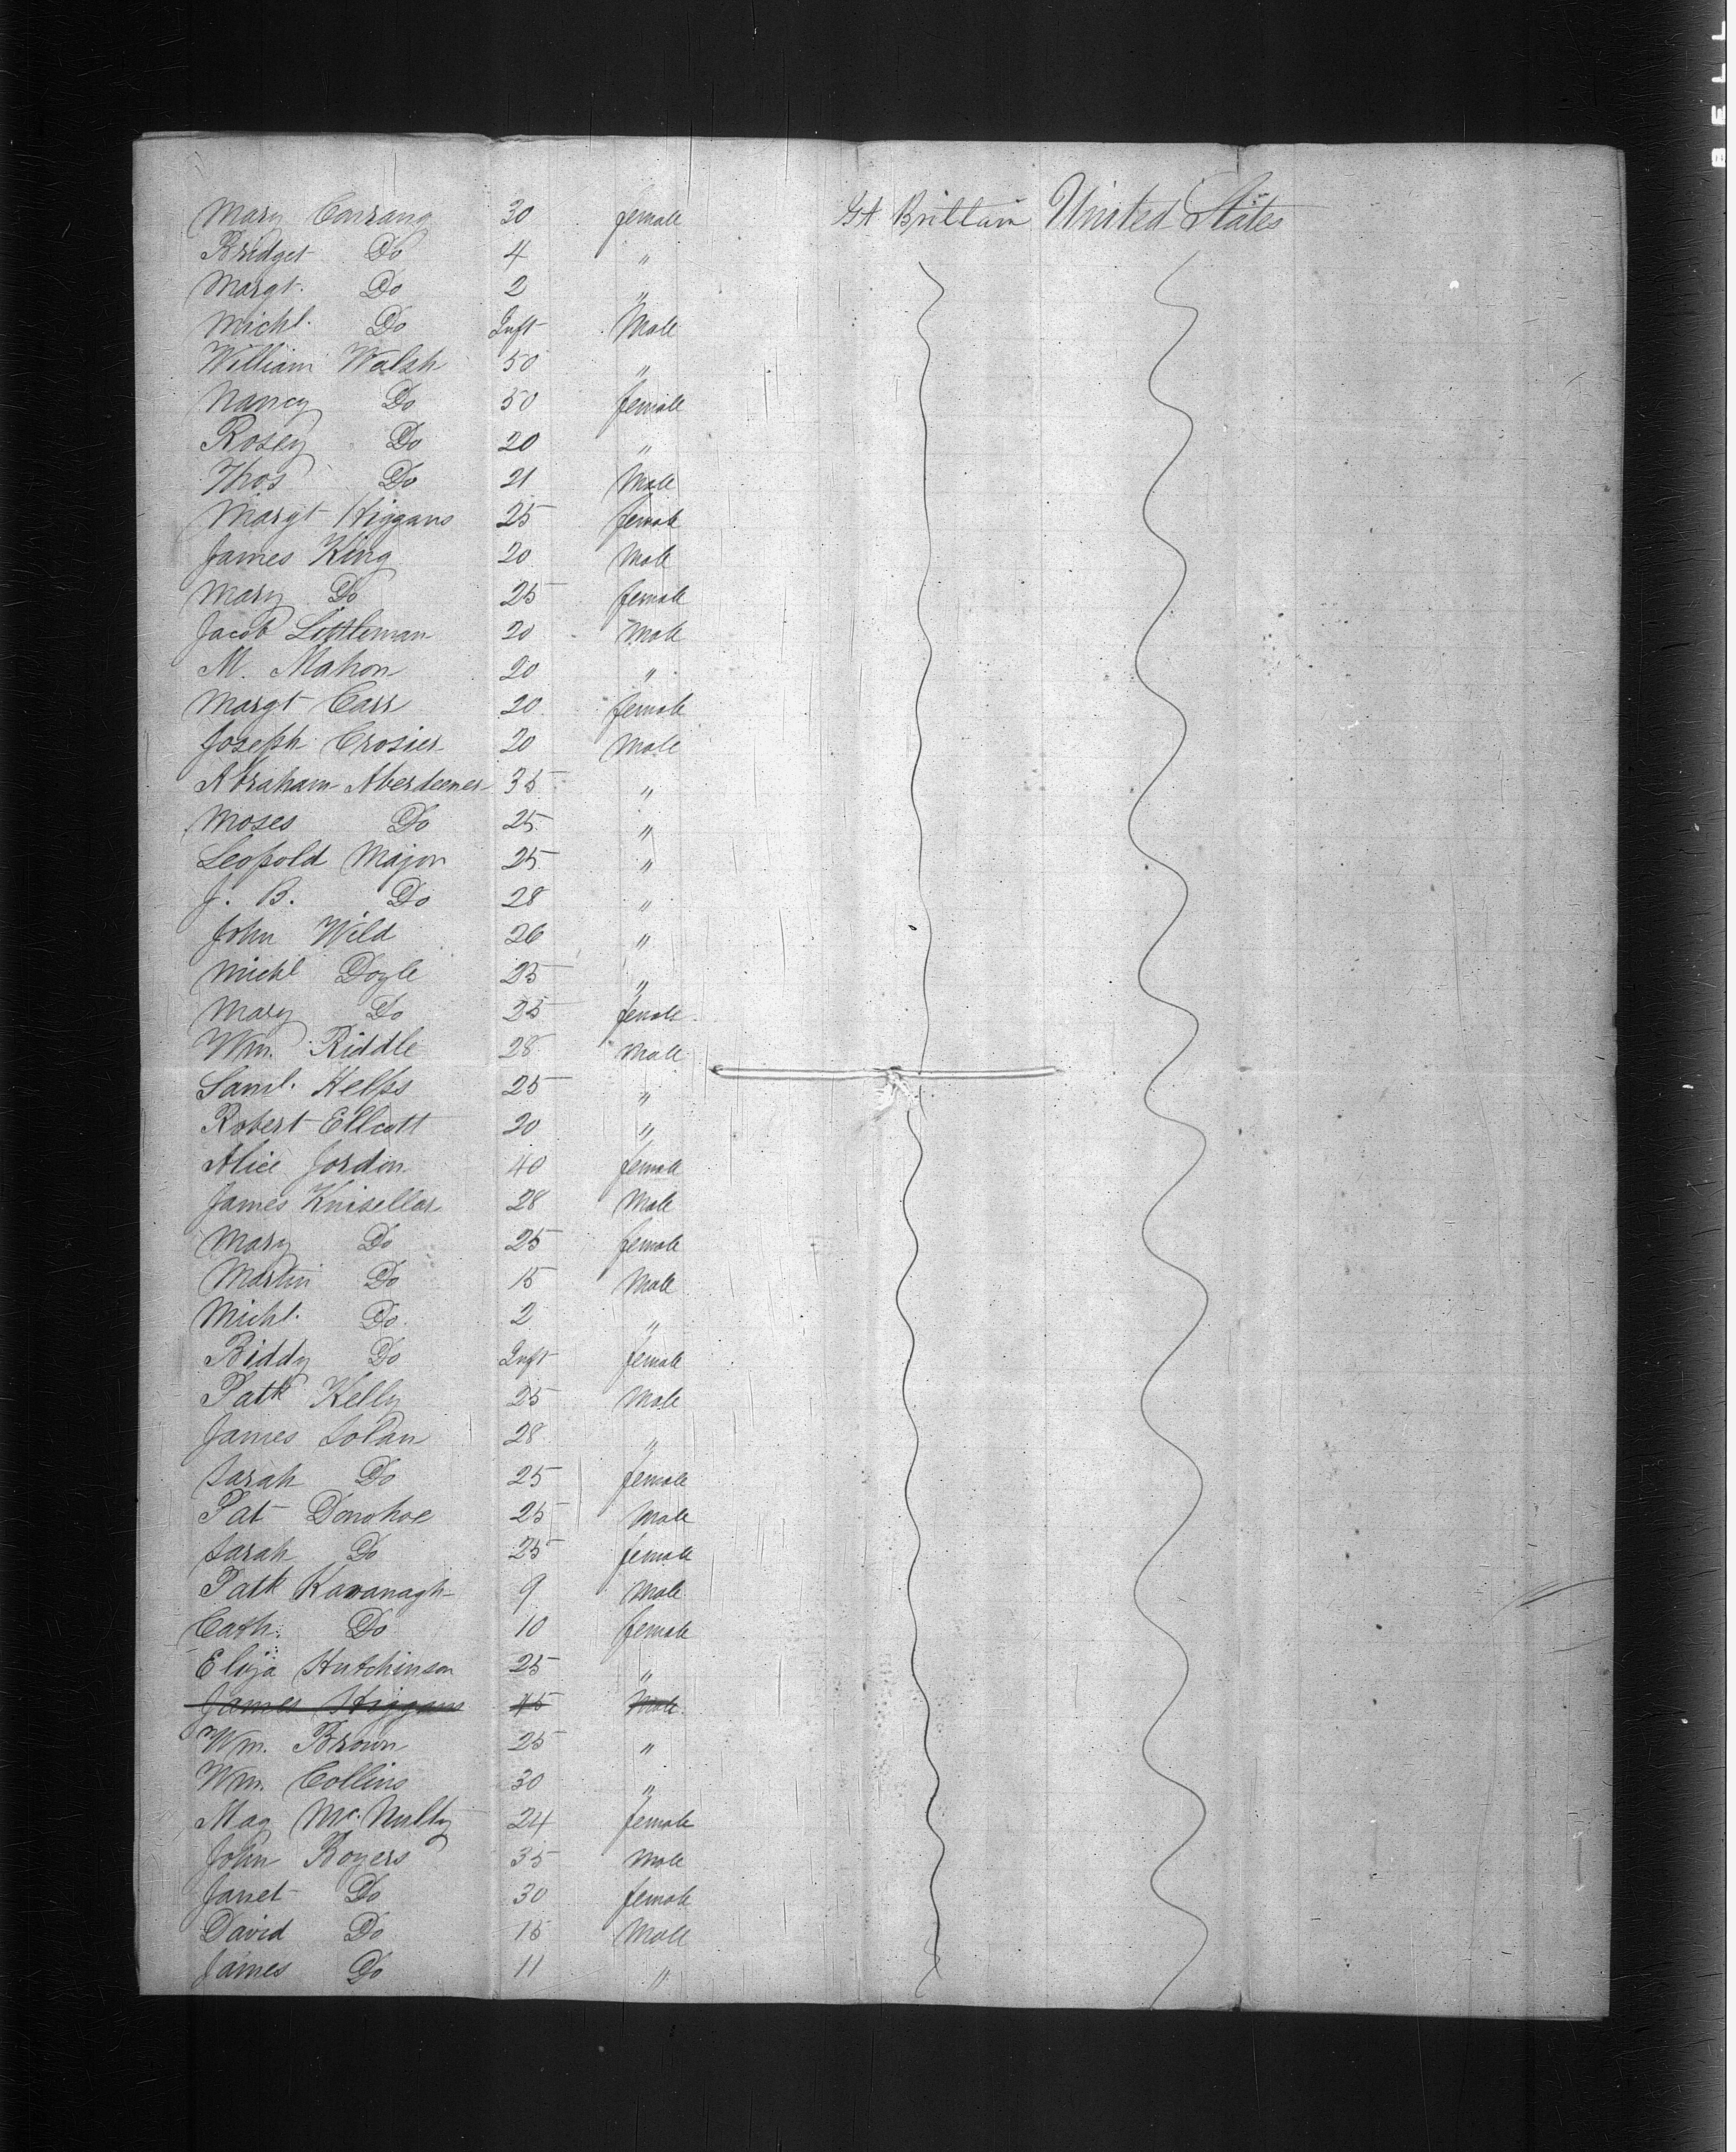 Mary Carrang 30 female Gt Brittain United States
Bridget Do 4 "
Margt. Do 2 "
Michl. Do Inft Male
William Walsh 50 "
Nancy Do 50 female
Rosey Do 20 "
Thos Do 21 Male
Margt Higgans 25 female
James King 20 Male
Mary Do 25 female
Jacob Littleman 20 Male
M. Mahon 20 "
Margt Carr 20 female
Joseph Crosier 20 Male
Abraham Aberdeener 35 "
Moses Do 25 "
Leopold Major 25 "
J. B. Do 28 "
John Wild 26 "
Michl Doyle 25 "
Mary Do 25 female
Wm. Riddle 28 Male
Saml. Kelps 25 "
Robert Ellcott 20 "
Alice Jordon 40 female
James Knisellar 28 Male
Mary Do 25 female
Martin Do 15 Male
Michl. Do 2 "
Biddy Do Inft female
Patk Kelly 25 Male
James Solan 28 "
Sarah Do 25 female
Pat Donohoe 25 Male
Sarah Do 25 female
Patk Kavanagh 9 Male
Cath. Do 10 female
Eliza Hutchinson 25 "
James Higgans 45 Male
Wm. Brown 25 "
Wm. Collins 30 "
Mag McNulty 24 female
John Boyers 35 Male
Janet Do 30 female
David Do 15 Male
James Do 11 "
BELL